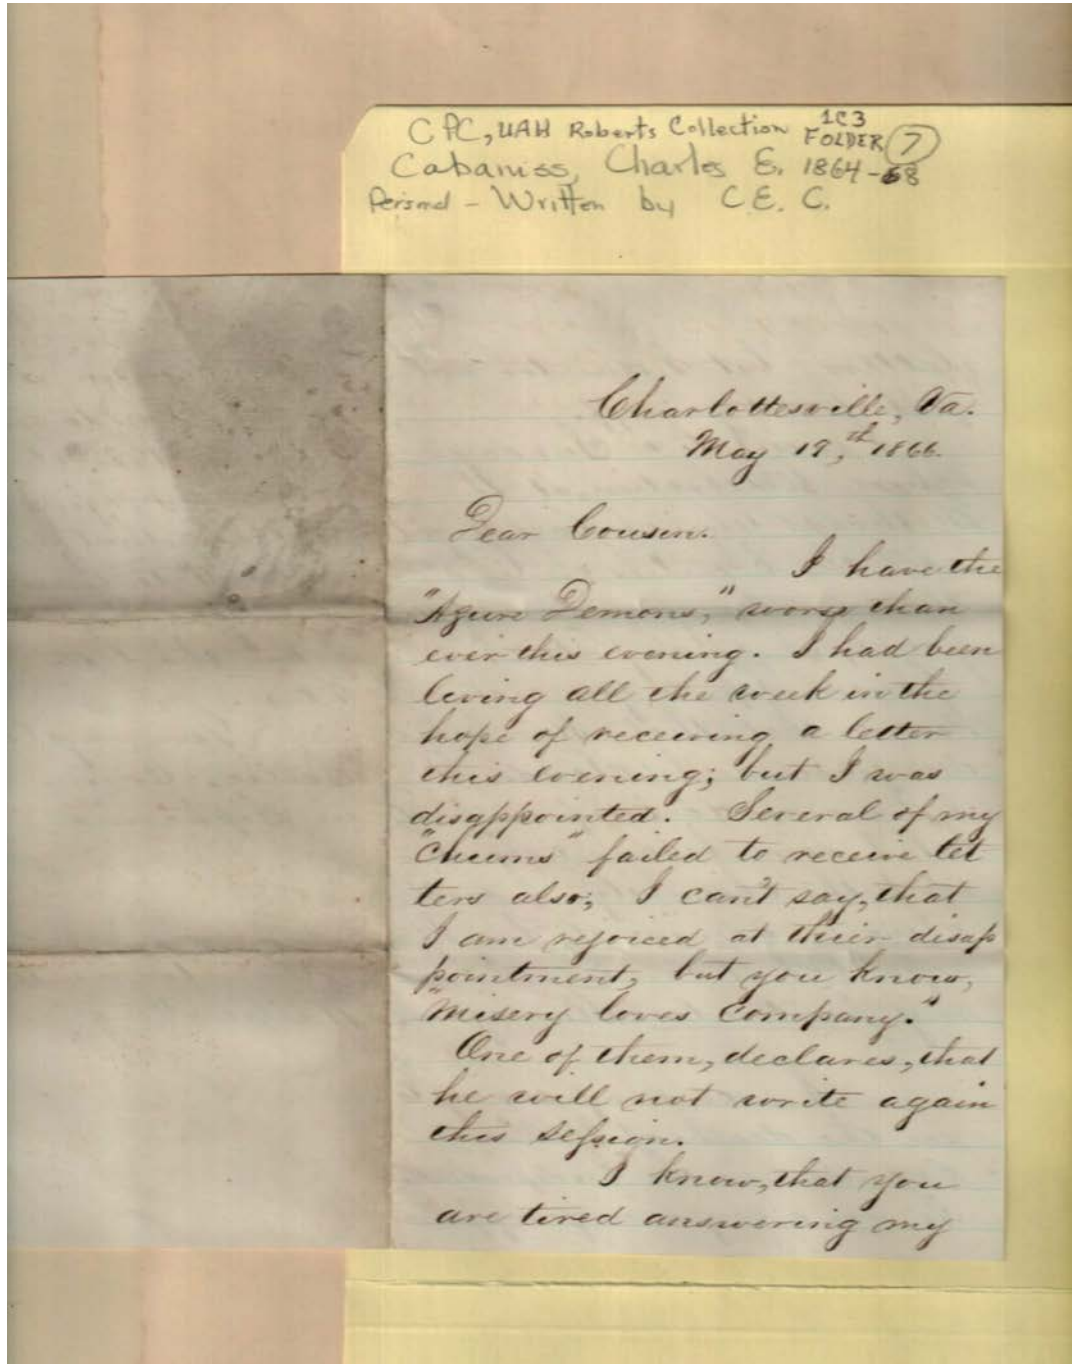 CPC, UAH Roberts Collection 1C3 FOLDER 7
Cabaniss, Charles E. 1864-68
Personal - Written by C. E. C.
Charlottesville, Va.
May 19,th 1866.
Dear Cousin.
I have the
"Azure Demons," worse than
ever this evening. I had been
living all the week in the
hope of receiving a letter
this evening; but I was
disappointed. Several of my
"Chums" failed to receive let
ters also; I can't say, that
I am rejoiced at their disap
pointment, but you know,
"Misery loves Company."
One of them, declares, that
he will not write again
this session.
I know, that you
are tired answering my